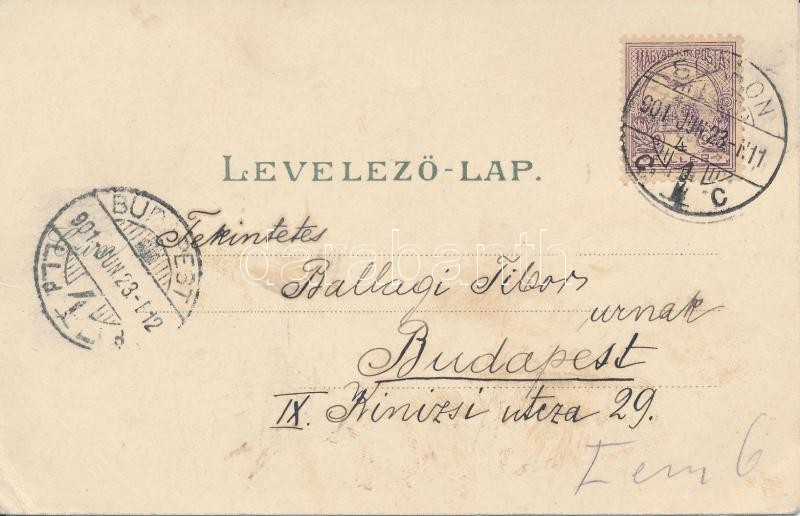 MAGYAR KIR. POSTA
901 JUN 23
C
LEVELEZŐ-LAP.
BUDAPEST
901 JUN 23
Tekintetes
darabanth
Ballagi Tibor
urnak
Budapest
IX. Kinizsi utcza 29.
I em 6